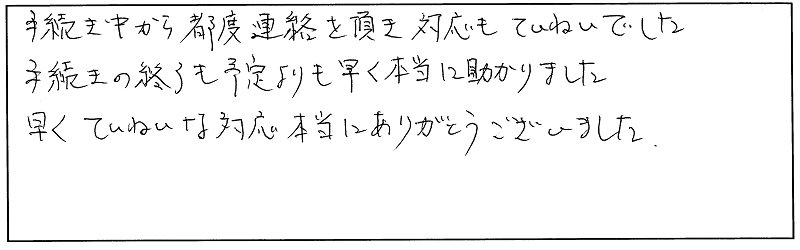 手続き中から都度連絡を頂き 対応も ていねいでした
手続きの終了も予定よりも早く本当に助かりました
早く ていねいな対応 本当にありがとうございました.